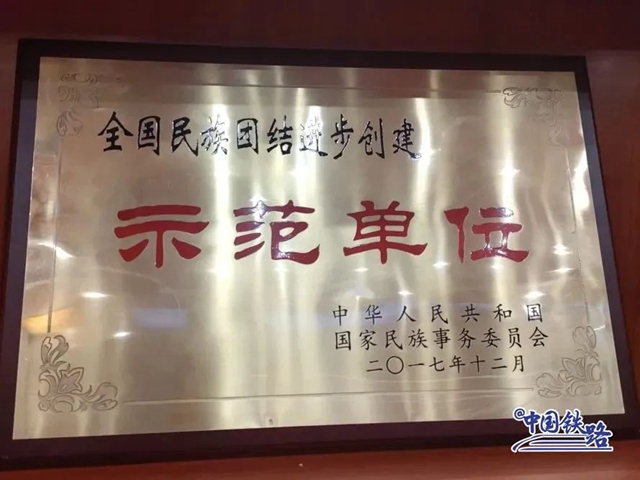 全国民族团结进步创建
示范单位
中华人民共和国
国家民族事务委员会
二〇一七年十二月
中国铁路